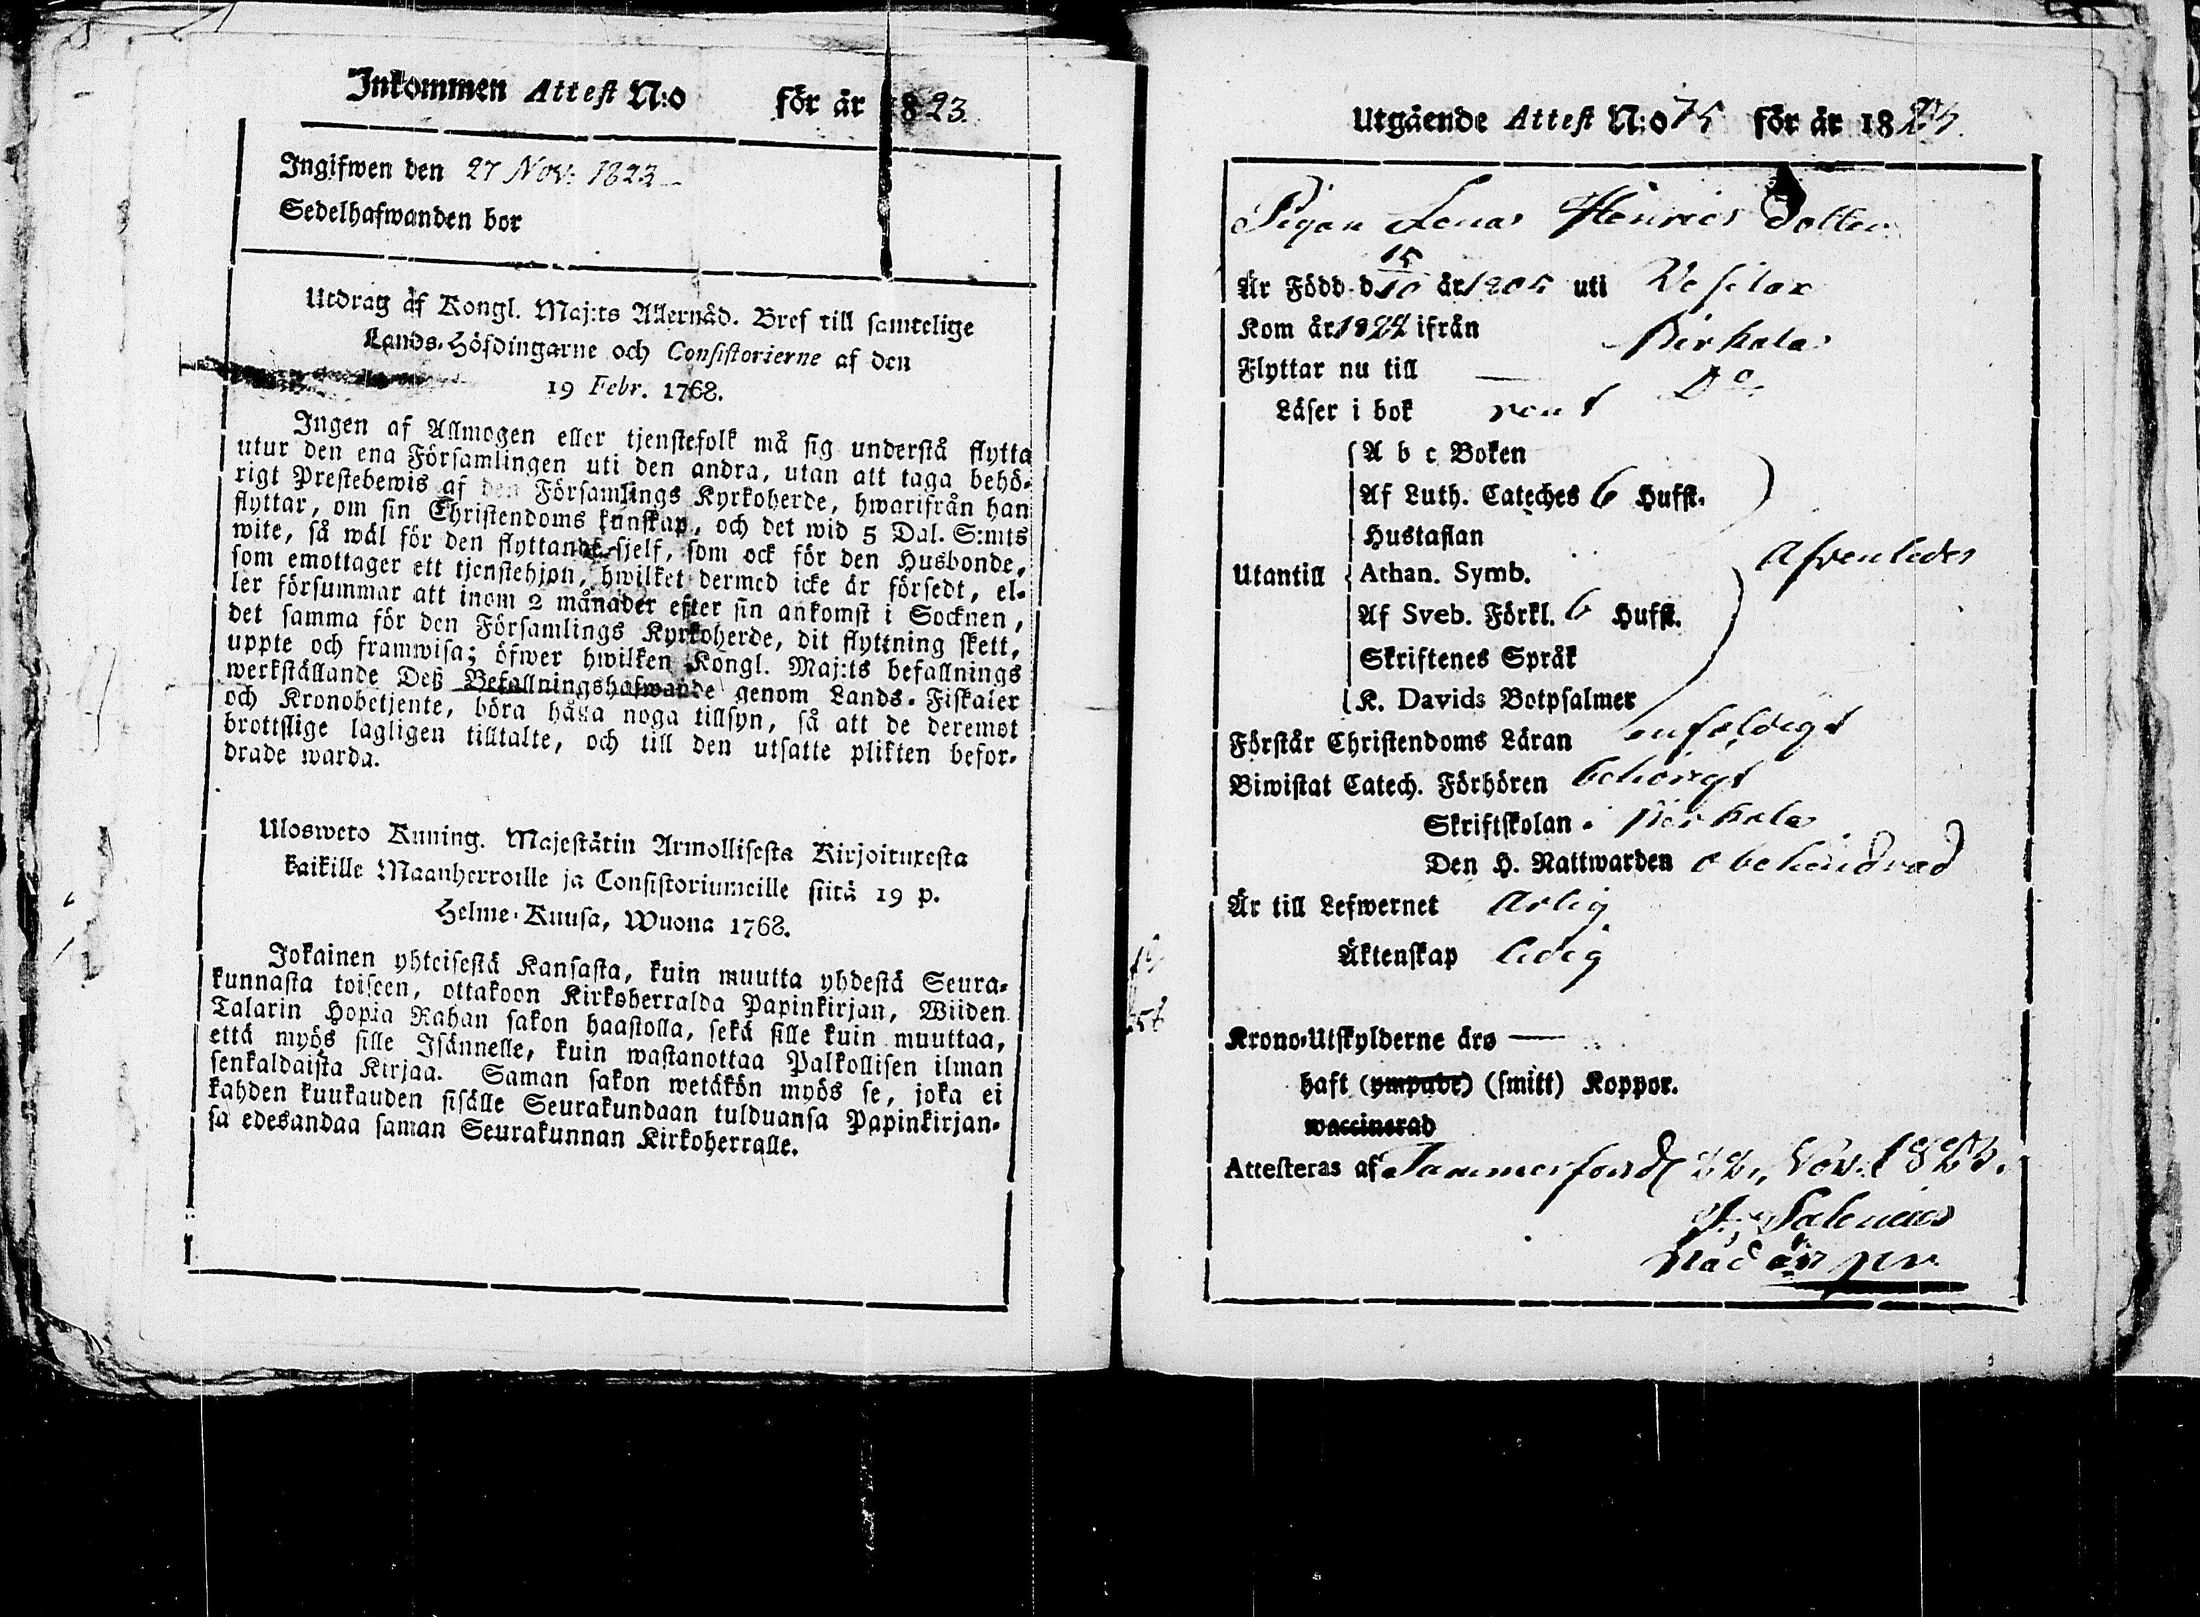 Inkommen Attest N:o för år 1823.
Ingifwen den 27 Nov: 1823
Sedelhafwanden bor
Utdrag af Kongl. Maj:ts Allernåd. Bref till samtelige
Lands-Höfdingarne och Consistorierne af den
19 Febr. 1768.
Ingen af Allmogen eller tjenstefolk må sig understå flytta
utur den ena Församlingen uti den andra, utan att taga behö-
rigt Prestebewis af den Församlings Kyrkoherde, hwarifrån han
flyttar, om sin Christendoms kunskap, och det wid 5 Dal. S:mts
wite, så wäl för den flyttande sjelf, som ock för den Husbonde,
som emottager ett tjenstehjon, hwilket dermed icke är försedt, el-
ler försummar att inom 2 månader efter sin ankomst i Socknen,
det samma för den Församlings Kyrkoherde, dit flyttning skett,
uppte och framwisa; öfwer hwilken Kongl. Maj:ts befallnings
werkställande Deß Befallningshafwande genom Lands-Fiskaler
och Kronobetjente, böra hålla noga tillsyn, så att de deremot
brottslige lagligen tilltalte, och till den utsatte plikten befor-
drade warda.
Ulosweto Kuning. Majestätin Armollisesta Kirjoituxesta
kaikille Maanherroille ja Consistoriumeille siitä 19 p.
Helme-Kuusa, Wuona 1768.
Jokainen yhteisestä Kansasta, kuin muutta yhdestä Seura-
kunnasta toiseen, ottakoon Kirkoherralda Papinkirjan, Wiiden
Talarin Hopia Rahan sakon haastolla, sekä sille kuin muuttaa,
että myös sille Isännelle, kuin wastanottaa Palkollisen ilman
senkaldaista Kirjaa. Saman sakon wetäkön myös se, joka ei
kahden kuukauden sisälle Seurakundaan tulduansa Papinkirjan-
sa edesandaa saman Seurakunnan Kirkoherralle.
Utgående Attest N:o 75 för år 1823.
Pigan Lena Henrics Dotter
Är Född d 15/10 år 1805 uti Vesilax
Kom år 1822 ifrån Birkala
Flyttar nu till — Do
Läser i bok rent
A b c Boken
Af Luth. Cateches 6 Hufst.
Hustaflan
Utantill Athan. Symb. Afvenledes
Af Sveb. Förkl. 6 Hufst.
Skriftenes Språk
K. Davids Botpsalmer
Förstår Christendoms Läran enfaldigt
Biwistat Catech. Förhören behörigt
Skriftskolan i Birkala
Den H. Nattwarden obehindrad
Är till Lefwernet ärlig
Äktenskap ledig
Krono-Utskylderne äro —
haft (ympade) (smitt) Koppor.
waccinerad
Attesteras af Tammerfors d 22 Nov. 1823.
Salenius